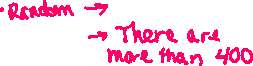 • Random →
→ There are
more than 400